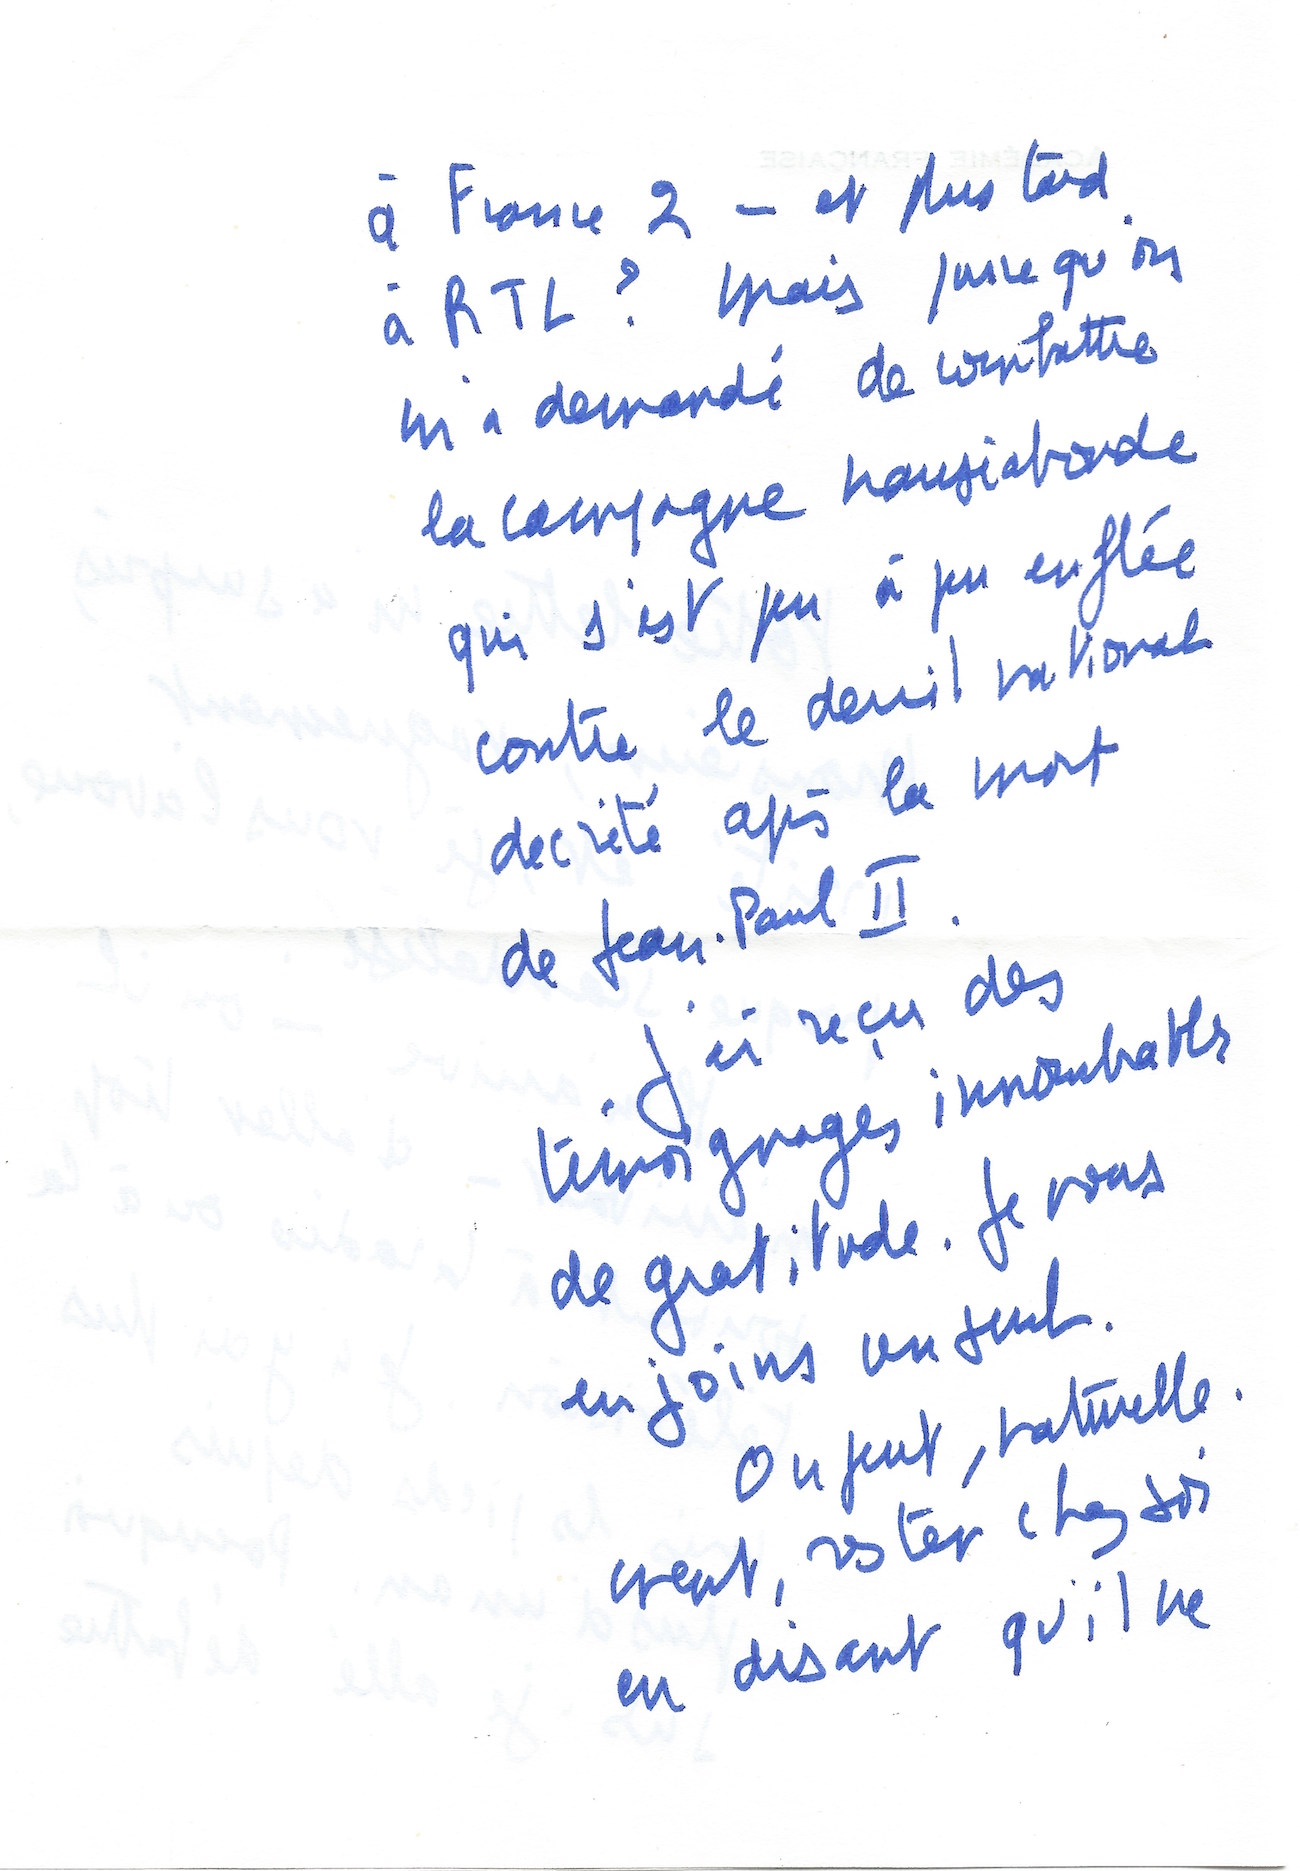 à France 2 – et plus tard
à RTL ? Mais parce qu'on
m'a demandé de combattre
la campagne nauséabonde
qui s'est peu à peu enflée
contre le deuil national
decrété après la mort
de Jean-Paul II.
J'ai reçu des
témoignages innombrables
de gratitude. Je vous
en joins un seul.
On peut, naturelle-
ment, rester chez soi
en disant qu'il ne
ACADÉMIE FRANÇAISE